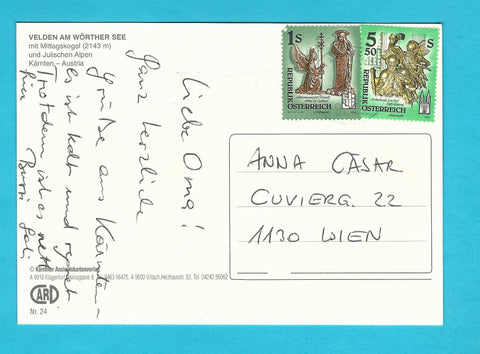 VELDEN AM WÖRTHER SEE
mit Mittagskogel (2143 m)
und Julischen Alpen
Kärnten – Austria
Liebe Oma!
Ganz herzliche
Grüße aus Kärnten –
es ist kalt und regnet
Trotzdem ist es nett
hier Bussi Gabi
1S
REPUBLIK
ÖSTERREICH
5 50 S
REPUBLIK
ÖSTERREICH
ANNA CÄSAR
CUVIERG. 22
1130 WIEN
© Kärntner Ansichtskartenverlag
CARD
Nr. 24